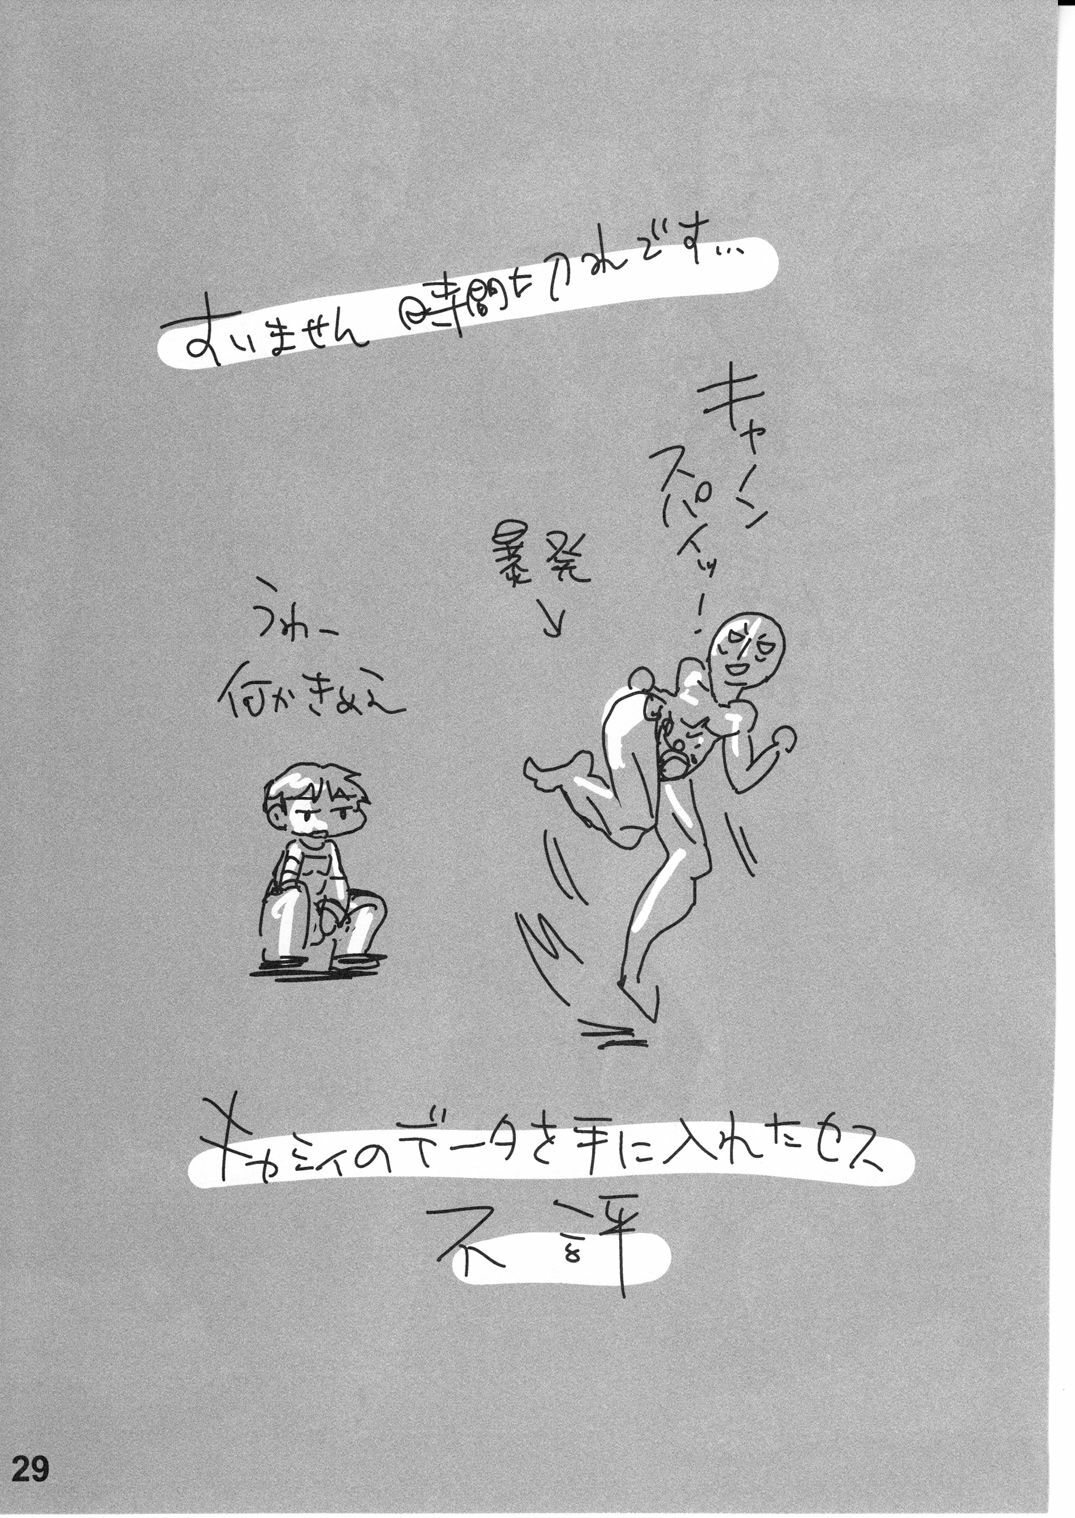 すいません 時間切れです…
キャノン
スパイッー!
暴発
うわー
何かきめえ
キャミィのデータを手に入れたセス
不評
29